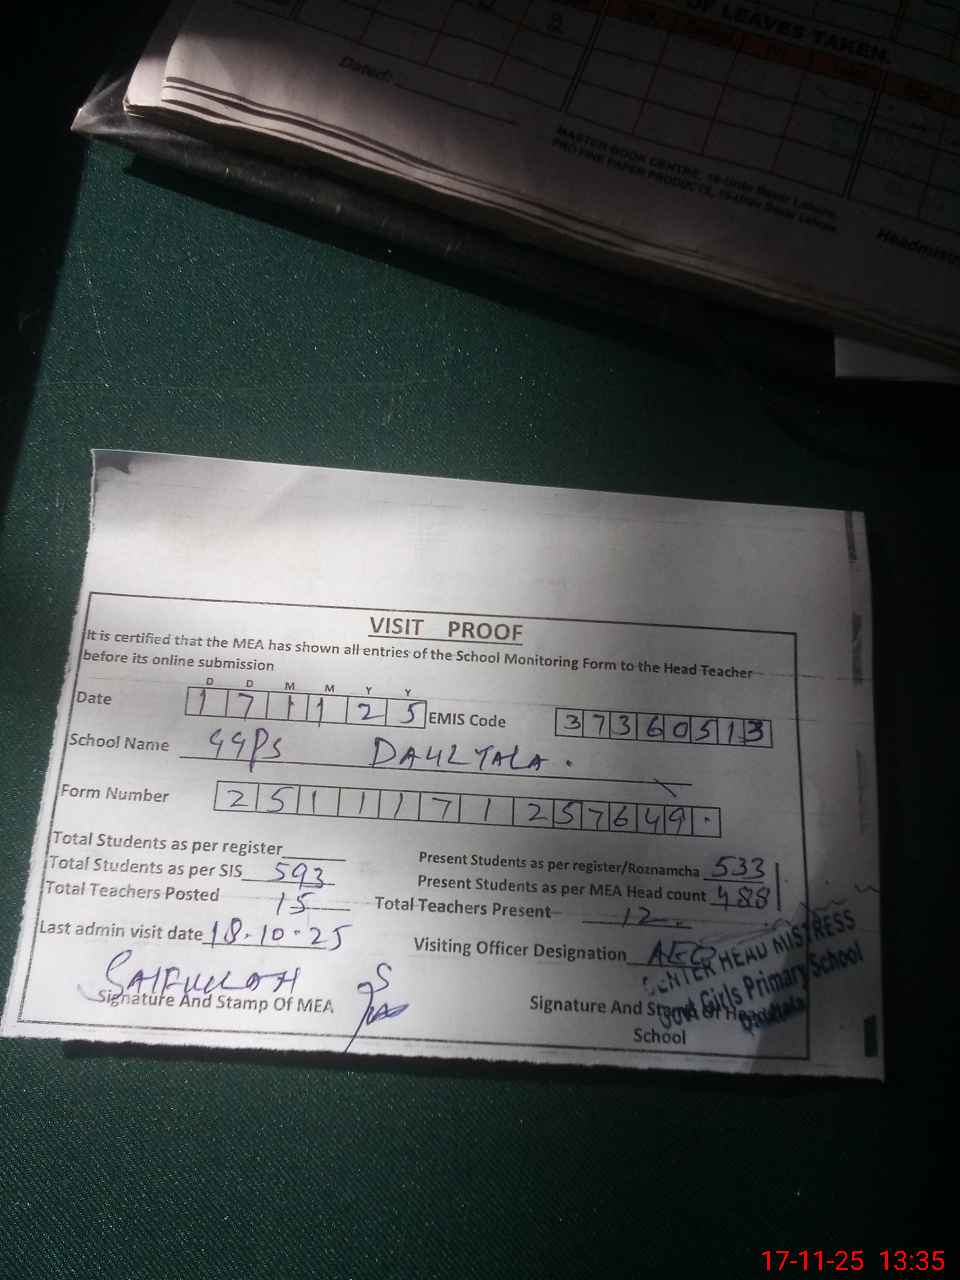 OF LEAVES TAKEN.
Dated:
MASTER BOOK CENTRE, 16-Urdu Bazar Lahore.
PRO FINE PAPER PRODUCTS, Urdu Bazar Lahore.
VISIT PROOF
It is certified that the MEA has shown all entries of the School Monitoring Form to the Head Teacher
before its online submission
D D M M Y Y
Date 1 7 1 1 2 5 EMIS Code 3 7 3 6 0 5 1 3
School Name GGPS DAULTALA.
Form Number 2 5 1 1 1 7 1 2 5 7 6 4 9 .
Total Students as per register
Present Students as per register/Roznamcha 533
Total Students as per SIS 593
Present Students as per MEA Head count 488
Total Teachers Posted 15
Total Teachers Present 12
Last admin visit date 18.10.25
Visiting Officer Designation AEO
SAIFULLAH
Signature And Stamp Of MEA
Signature And Stamp Of Head
School
CENTER HEAD MISTRESS
Govt Girls Primary School
Daultala
17-11-25 13:35